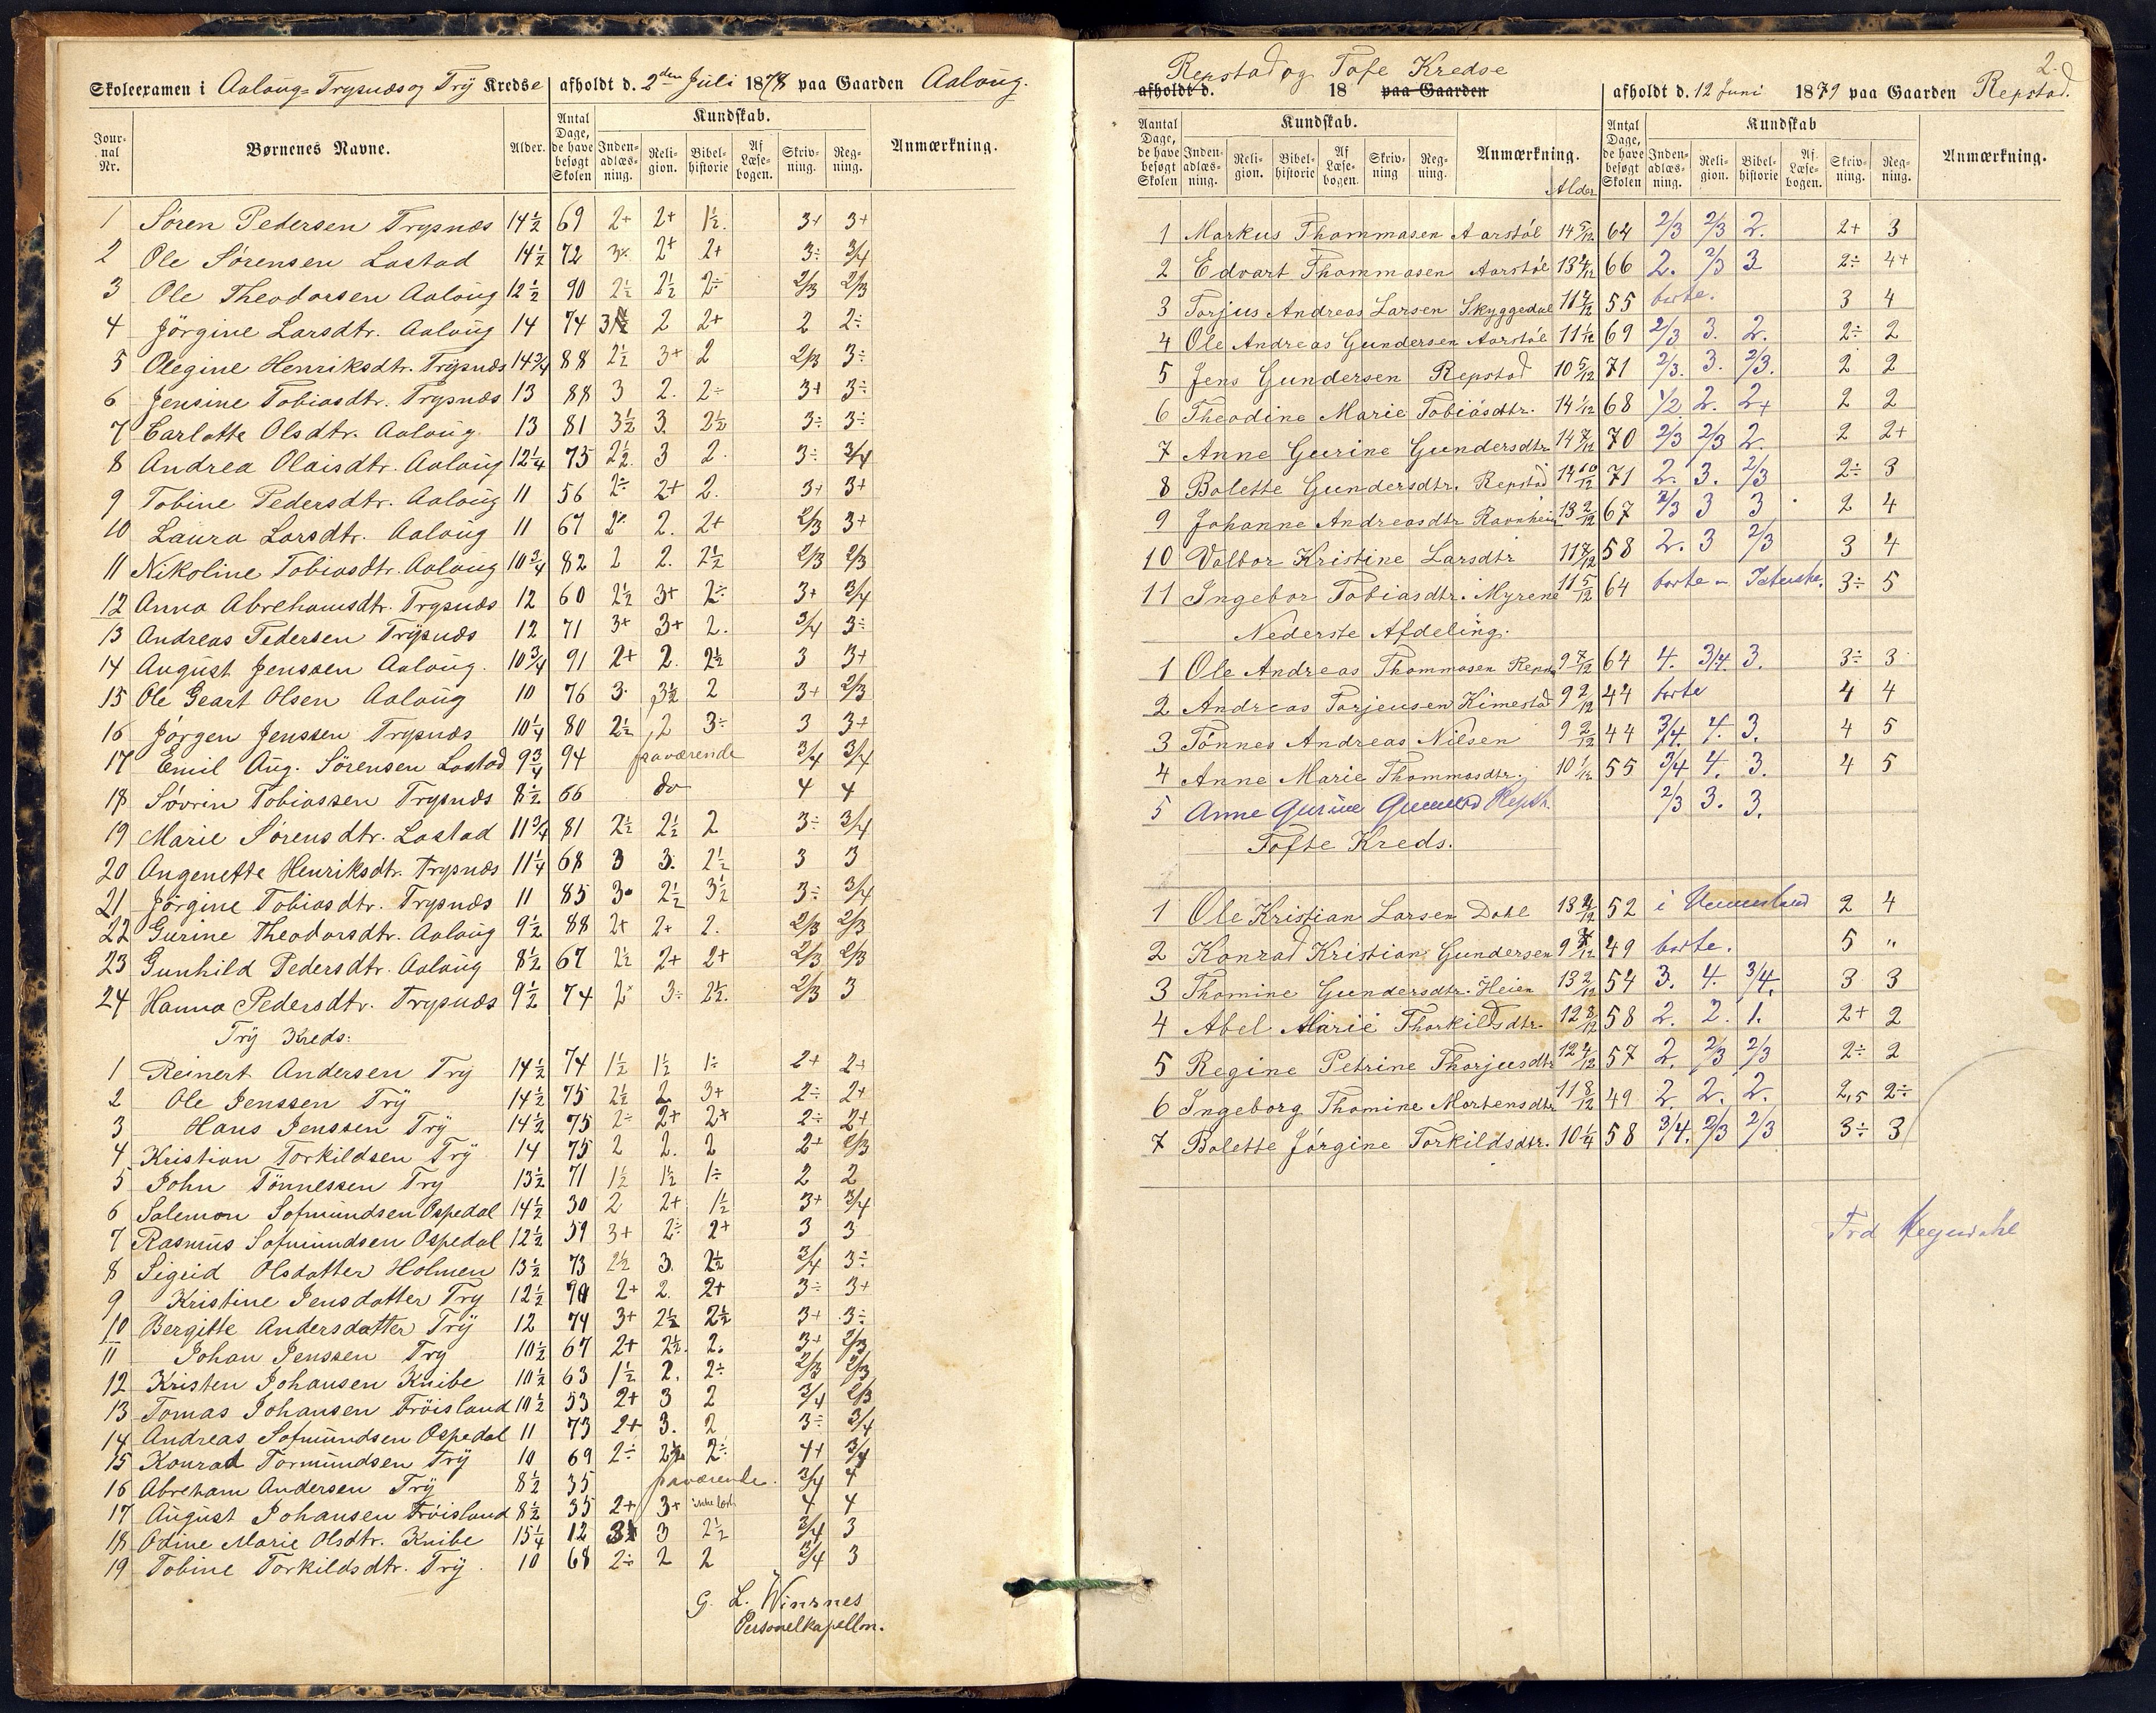 Skoleexamen i Aalaug= Trysnæs og Try Kredse afholdt d. 2den Juli 1878 paa Gaarden Aalaug.
Journal Nr. Børnenes Navne. Alder. Antal Dage, de have besøgt Skolen Kundskab. Indenadlæsning. Religion. Bibelhistorie Af Læsebogen. Skrivning. Regning. Anmærkning.
1 Sören Pedersen Trysnæs 14½ 69 2+ 2+ 1½. 3+ 3+
2 Ole Sörensen Lastad 14½ 72 3÷ 2+ 2+ 3÷ 3/4
3 Ole Theodorsen Aalaug 12½ 90 2½ 2½ 2÷ 2/3 2/3
4 Jörgine Larsdtr. Aalaug 14 74 3½ 2 2+ 2 2÷
5 Olegine Henriksdtr. Trysnæs 14¾ 88 2½ 3+ 2 2/3 3÷
6 Jensine Tobiasdtr. Trysnæs 13 88 3 2. 2÷ 3+ 3÷
7 Carlotte Olsdtr. Aalaug 13 81 3½ 3. 2½ 3÷ 3÷
8 Andrea Olaisdtr. Aalaug 12¼ 75 2½ 3 2. 3÷ 3/4
9 Tobine Pedersdtr. Aalaug 11 56 2÷ 2+ 2. 3+ 3+
10 Laura Larsdtr. Aalaug 11 67 2÷ 2. 2+ 2/3 3+
11 Nikoline Tobiasdtr. Aalaug 10¾ 82 2 2. 2½ 2/3 2/3
12 Anna Abrehamsdtr. Trysnæs 12 60 2½ 3+ 2÷ 3+ 3/4
13 Andreas Pedersen Trysnæs 12 71 3+ 3+ 2. 3/4 3÷
14 August Jenssen Aalaug. 10¾ 91 2+ 2. 2½ 3 3+
15 Ole Geart Olsen Aalaug 10 76 3. 3½ 2 3+ 2/3
16 Jörgen Jenssen Trysnæs 10¼ 80 2½ 2 3÷ 3 3+
17 Emil Aug. Sörensen Lastad 9¾ 94 fraværende 3/4 3/4
18 Sövrin Tobiassen Trysnæs 8½ 66 do 4 4
19 Marie Sörensdtr. Lastad 11¾ 81 2½ 2½ 2 3÷ 3/4
20 Angenette Henriksdtr. Trysnæs 11¼ 68 3 3. 2½ 3 3
21 Jörgine Tobiasdtr. Trysnæs 11 85 3. 2½ 3½ 3÷ 3/4
22 Gurine Theodorsdtr. Aalaug 9½ 88 2+ 2+ 2. 2/3 2/3
23 Gunhild Pedersdtr. Aalaug 8½ 67 2½ 2+ 2+ 2/3 2/3
24 Hanna Pedersdtr. Trysnæs 9½ 74 2÷ 3÷ 2½. 2/3 3
Try Kreds:
1 Reinert Andersen Try 14½ 74 1½ 1½ 1÷ 2+ 2+
2 Ole Jenssen Try 14½ 75 2½ 2 3+ 2÷ 2+
3 Hans Jenssen Try 14½ 75 2÷ 2+ 2+ 2÷ 2+
4 Kristian Torkildsen Try 14 75 2 2. 2 2+ 2/3
5 John Tönnessen Try 13½ 71 1½ 1½ 1÷ 2 2
6 Salemon Sofmundsen Ospedal 14½ 30 2 2+ 1½ 3+ 3/4
7 Rasmus Sofmundsen Ospedal 12½ 59 3+ 2÷ 2+ 3 3
8 Sigrid Olsdatter Holmen 13½ 73 2½ 3. 2½ 3/4 3÷
9 Kristine Jensdatter Try 12½ 2+ 2. 2+ 3÷ 3+
10 Bergitte Andersdatter Try 12 74 3+ 2½ 2½ 3+ 3÷
11 Johan Jenssen Try 10½ 67 2+ 2½. 2. 3+ 2/3
12 Kristen Johansen Knibe 10½ 63 1½ 2. 2÷ 2/3 2/3
13 Tomas Johansen Fröisland 10½ 53 2+ 3 2 3/4 2/3
14 Andreas Sofmundsen Ospedal 11 73 2+ 3. 2 3÷ 3/4
15 Konrad Tormundsen Try 10 69 2÷ 2½ 2÷ 4+ 3/4
16 Abreham Andersen Try 8½ 35 fraværende. 3/4 4
17 August Johansen Fröisland 8½ 35 2+ 3+ ikke læst 4 4
18 Odine Marie Olsdtr. Knibe 15¼ 12 3½ 3 2½ 3/4 3
19 Tobine Torkildsdtr. Try. 10 68 2÷ 2 2 3/4 3
G. L. Winsnes
Personelkapellan.
2.
Repstad og Tofe Kredse
afholdt d. 18 paa Gaarden afholdt d. 12 Juni 1879 paa Gaarden Repstad.
Aantal Dage, de have besøgt Skolen Kundskab. Indenadlæsning. Religion. Bibelhistorie Af Læsebogen. Skrivning Regning. Anmærkning. Alder Antal Dage, de have besøgt Skolen Kundskab Indenadlæsning. Religion. Bibelhistorie Af Læsebogen. Skrivning. Regning. Anmærkning.
1 Markus Thommasen Aarstöl 14 5/12 64 2/3 2/3 2. 2+ 3
2 Edvart Thommasen Aarstöl 13 4/12 66 2. 2/3 3 2÷ 4+
3 Torjus Andreas Larsen Skyggedal 11 4/12 55 borte. 3 4
4 Ole Andreas Gundersen Aarstöl 11 1/12 69 2/3 3. 2. 2÷ 2
5 Jens Gundersen Repstad 10 5/12 71 2/3. 3. 2/3. 2 2
6 Theodine Marie Tobiasdtr. 14 1/12 68 1/2 2. 2+ 2 2
7 Anne Gurine Gundersdtr. 14 7/12 70 2/3 2/3 2. 2 2+
8 Bolette Gundersdtr. Repstad 14 10/12 71 2. 3. 2/3 2÷ 3
9 Johanne Andreasdtr Ravnheia 13 2/12 67 2/3 3 3 2 4
10 Valbor Kristine Larsdtr 11 8/12 58 2. 3 2/3 3 4
11 Ingebor Tobiasdtr. Myrene 11 5/12 64 borte 3÷ 5
Nederste Afdeling.
1 Ole Andreas Thommasen Reps. 9 7/12 64 4. 3/4. 3. 3÷ 3
2 Andreas Torjeusen Kimestad 9 2/12 44 borte 4 4
3 Tönnes Andreas Nilsen 9 2/12 44 3/4. 4. 3. 4 5
4 Anne Marie Thommasdtr. 10 1/12 55 3/4 4. 3. 4 5
5 Anne Gurine Repst. 2/3 3. 3.
Tofte Kreds.
1 Ole Kristian Larsen Dahl 13 4/12 52 i 2 4
2 Konrad Kristian Gundersen 9 49 borte. 5 "
3 Thomine Gundersdtr. Heien 13 2/12 54 3. 4. 3/4. 3 3
4 Abel Marie Thorkildsdtr. 12 8/12 58 2. 2. 1. 2+ 2
5 Regine Petrine Thorjusdtr 12 4/12 57 2. 2/3 2/3 2÷ 2
6 Ingeborg Thomine Mortensdtr 11 8/12 49 2. 2. 2. 2,5 2÷
7 Bolette Jörgine Torkildsdtr. 10¼ 58 3/4. 2/3 2/3 3÷ 3